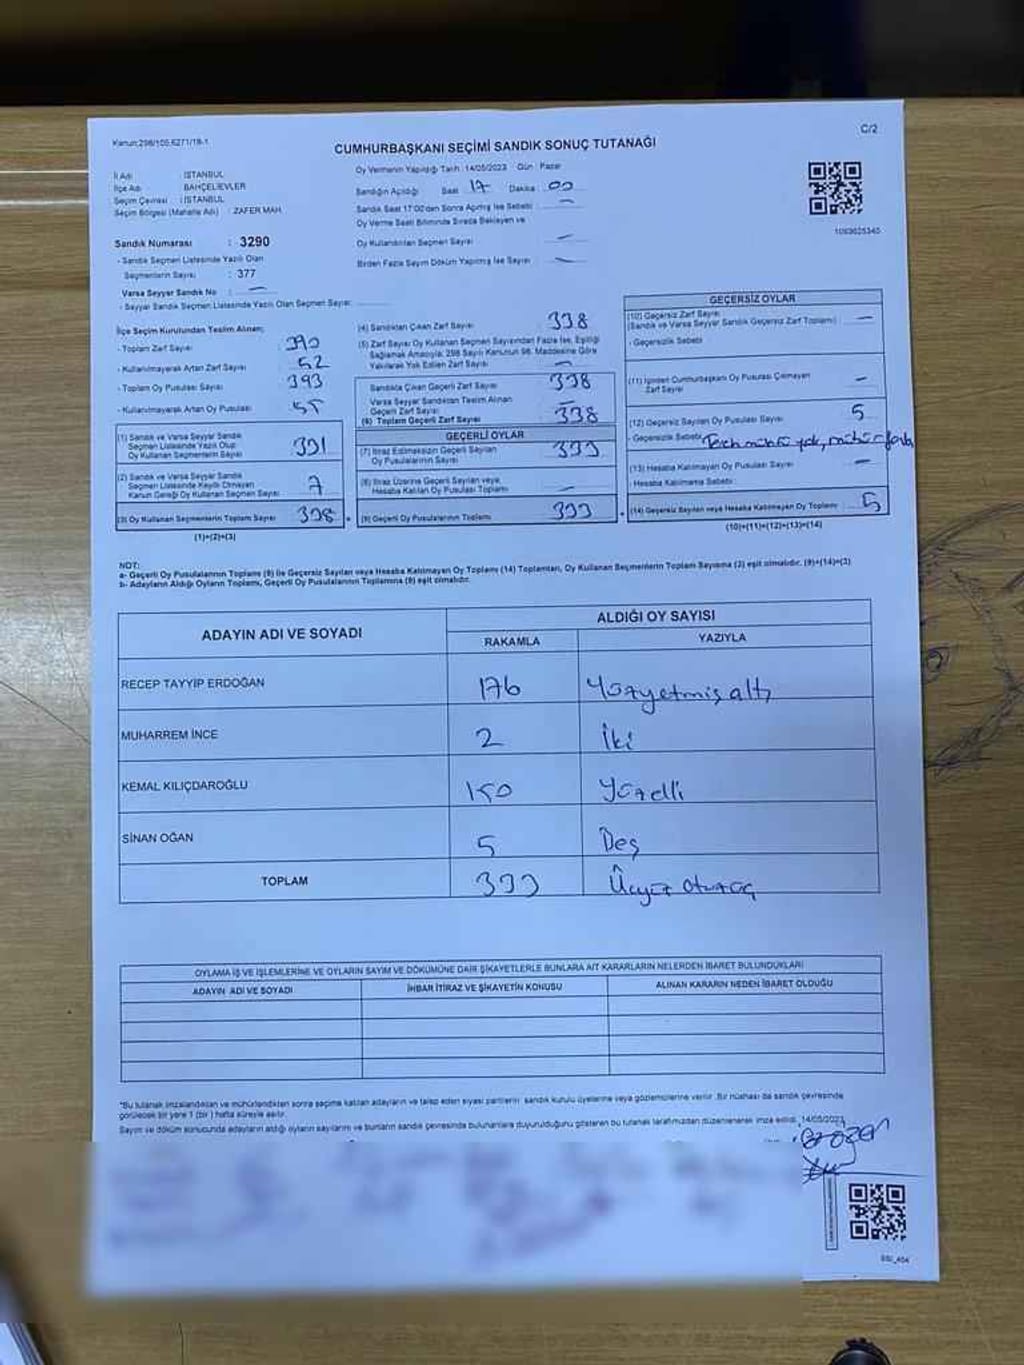 Kanun:298/105,6271/18-1
C/2
CUMHURBAŞKANI SEÇİMİ SANDIK SONUÇ TUTANAĞI
İl Adı : İSTANBUL
İlçe Adı : BAHÇELİEVLER
Seçim Çevresi : İSTANBUL
Seçim Bölgesi (Mahalle Adı) : ZAFER MAH.
Oy Vermenin Yapıldığı Tarih : 14/05/2023 Gün : Pazar
Sandığın Açıldığı Saat 17 Dakika 00
Sandık Saat 17:00'den Sonra Açılmış İse Sebebi
Oy Verme Saati Bitiminde Sırada Bekleyen ve
Oy Kullandırılan Seçmen Sayısı
Birden Fazla Sayım Döküm Yapılmış İse Sayısı
Sandık Numarası : 3290
- Sandık Seçmen Listesinde Yazılı Olan
Seçmenlerin Sayısı : 377
Varsa Seyyar Sandık No :
- Seyyar Sandık Seçmen Listesinde Yazılı Olan Seçmen Sayısı:
İlçe Seçim Kurulundan Teslim Alınan;
- Toplam Zarf Sayısı 390
- Kullanılmayarak Artan Zarf Sayısı 52
- Toplam Oy Pusulası Sayısı 393
- Kullanılmayarak Artan Oy Pusulası 55
(1) Sandık ve Varsa Seyyar Sandık
Seçmen Listesinde Yazılı Olup
Oy Kullanan Seçmenlerin Sayısı 331
(2) Sandık ve Varsa Seyyar Sandık
Seçmen Listesinde Kaydı Olmayan
Kanun Gereği Oy Kullanan Seçmen Sayısı 7
(3) Oy Kullanan Seçmenlerin Toplam Sayısı 338
(1)+(2)=(3)
(4) Sandıktan Çıkan Zarf Sayısı 338
(5) Zarf Sayısı Oy Kullanan Seçmen Sayısından Fazla İse, Eşitliği
Sağlamak Amacıyla; 298 Sayılı Kanunun 98. Maddesine Göre
Yakılarak Yok Edilen Zarf Sayısı
Sandıkta Çıkan Geçerli Zarf Sayısı 338
Varsa Seyyar Sandıktan Teslim Alınan
Geçerli Zarf Sayısı
(6) Toplam Geçerli Zarf Sayısı 338
GEÇERLİ OYLAR
(7) İtiraz Edilmeksizin Geçerli Sayılan
Oy Pusulalarının Sayısı 333
(8) İtiraz Üzerine Geçerli Sayılan veya
Hesaba Katılan Oy Pusulası Toplamı
(9) Geçerli Oy Pusulalarının Toplamı 333
GEÇERSİZ OYLAR
(10) Geçersiz Zarf Sayısı
(Sandık ve Varsa Seyyar Sandık Geçersiz Zarf Toplamı)
- Geçersizlik Sebebi
(11) İçinden Cumhurbaşkanı Oy Pusulası Çıkmayan
Zarf Sayısı
(12) Geçersiz Sayılan Oy Pusulası Sayısı 5
- Geçersizlik Sebebi
(13) Hesaba Katılmayan Oy Pusulası Sayısı
- Hesaba Katılmama Sebebi
(14) Geçersiz Sayılan veya Hesaba Katılmayan Oy Toplamı 5
(10)+(11)+(12)+(13)=(14)
NOT:
a- Geçerli Oy Pusulalarının Toplamı (9) ile Geçersiz Sayılan veya Hesaba Katılmayan Oy Toplamı (14) Toplamları, Oy Kullanan Seçmenlerin Toplam Sayısına (3) eşit olmalıdır. (9)+(14)=(3)
b- Adayların Aldığı Oyların Toplamı, Geçerli Oy Pusulalarının Toplamına (9) eşit olmalıdır.
ADAYIN ADI VE SOYADI
ALDIĞI OY SAYISI
RAKAMLA YAZIYLA
RECEP TAYYİP ERDOĞAN 176 Yüzyetmiş altı
MUHARREM İNCE 2 İki
KEMAL KILIÇDAROĞLU 150 Yüzelli
SİNAN OĞAN 5 Beş
TOPLAM 333 Üçyüz otuzüç
OYLAMA İŞ VE İŞLEMLERİNE VE OYLARIN SAYIM VE DÖKÜMÜNE DAİR ŞİKAYETLERLE BUNLARA AİT KARARLARIN NELERDEN İBARET BULUNDUKLARI
ADAYIN ADI VE SOYADI
İHBAR İTİRAZ VE ŞİKAYETİN KONUSU
ALINAN KARARIN NEDEN İBARET OLDUĞU
*Bu tutanak imzalandıktan ve mühürlendikten sonra seçime katılan adayların ve talep eden siyasi partilerin sandık kurulu üyelerine veya gözlemcilerine verilir. Bir nüshası da sandık çevresinde
görülecek bir yere 1 (bir) hafta süreyle asılır.
Sayım ve döküm sonucunda adayların aldığı oyların sayılarını ve bunların sandık çevresinde bulunanlara duyurulduğunu gösteren bu tutanak tarafımızdan düzenlenerek imza edildi. 14/05/2023